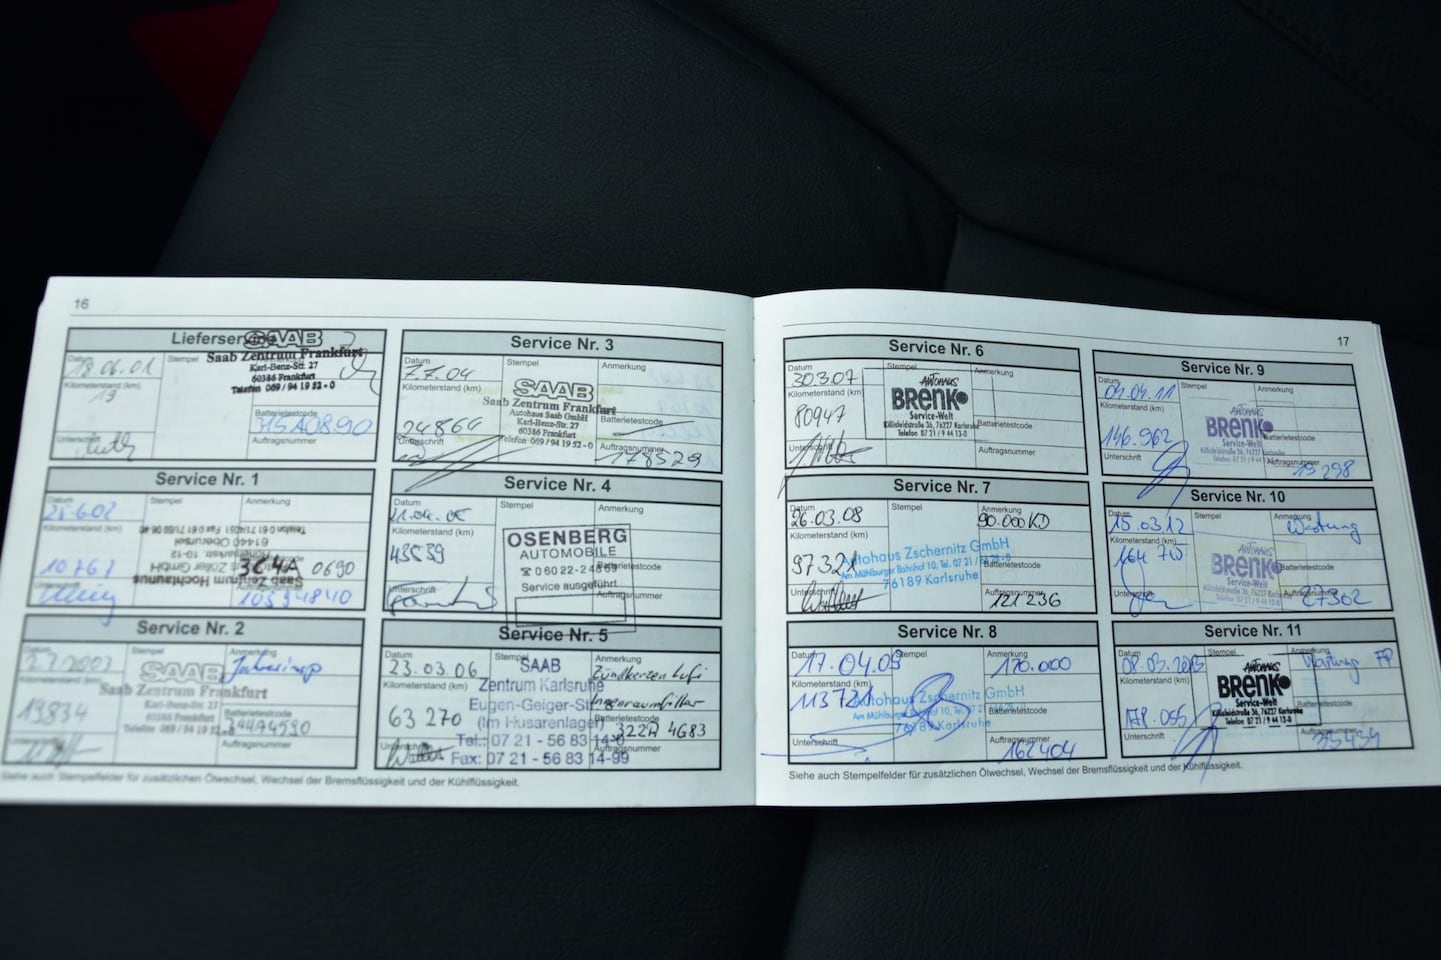 16
Lieferservice
Datum
Stempel
18.06.01
SAAB
Saab Zentrum Frankfurt
Karl-Benz-Str. 27
60386 Frankfurt
Telefon 069 / 94 19 52 - 0
Kilometerstand (km)
19
Batterietestcode
315A0890
Unterschrift
Auftragsnummer
Service Nr. 1
Datum
Stempel
Anmerkung
Kilometerstand (km)
Telefon 0 61 71/40 51 Fax 0 61 71/59 06 40
61440 Oberursel
Hohemarkstr. 10-12
Saab Zentrum Hochtaunus
10767
3C4A 0690
Service Nr. 2
Datum
Stempel
Anmerkung
2.7.2003
SAAB
Saab Zentrum Frankfurt
Karl-Benz-Str. 27
60386 Frankfurt
Kilometerstand (km)
19834
Batterietestcode
Unterschrift
Auftragsnummer
Service Nr. 3
Datum
Stempel
Anmerkung
7.7.04
SAAB
Saab Zentrum Frankfurt
Autohaus Saab GmbH
Karl-Benz-Str. 27
60386 Frankfurt
Telefon 069 / 94 19 52 - 0
Kilometerstand (km)
Batterietestcode
Unterschrift
Auftragsnummer
178529
Service Nr. 4
Datum
Stempel
Anmerkung
OSENBERG
AUTOMOBILE
Service ausgeführt
Kilometerstand (km)
43539
Batterietestcode
Unterschrift
Auftragsnummer
Service Nr. 5
Datum
Stempel
Anmerkung
23.03.06
SAAB
Zentrum Karlsruhe
Eugen-Geiger-Str. 8
(im Husarenlager)
Tel.: 07 21 - 56 83 14-0
Fax: 07 21 - 56 83 14-99
Zündkerzen
Innenraumfilter
Kilometerstand (km)
63 270
Batterietestcode
322A 4G83
Unterschrift
Auftragsnummer
Siehe auch Stempelfelder für zusätzlichen Ölwechsel, Wechsel der Bremsflüssigkeit und der Kühlflüssigkeit.
17
Service Nr. 6
Datum
Stempel
Anmerkung
30.3.07
AUTOHAUS
BRENK
Service-Welt
Killisfeldstraße 36, 76227 Karlsruhe
Telefon 07 21 / 9 44 13-0
Kilometerstand (km)
80947
Batterietestcode
Unterschrift
Auftragsnummer
Service Nr. 7
Datum
Stempel
Anmerkung
26.03.08
90.000 KD
Autohaus Zschernitz GmbH
76189 Karlsruhe
Kilometerstand (km)
Batterietestcode
Unterschrift
Auftragsnummer
121 236
Service Nr. 8
Datum
Stempel
Anmerkung
17.04.09
120.000
Autohaus Zschernitz GmbH
76189 Karlsruhe
Kilometerstand (km)
113721
Batterietestcode
Unterschrift
Auftragsnummer
162404
Service Nr. 9
Datum
Stempel
Anmerkung
04.04.11
AUTOHAUS
BRENK
Service-Welt
Killisfeldstraße 36, 76227 Karlsruhe
Telefon 07 21 / 9 44 13-0
Kilometerstand (km)
146.962
Batterietestcode
Unterschrift
Auftragsnummer
15298
Service Nr. 10
Datum
Stempel
Anmerkung
15.03.12
Wartung
AUTOHAUS
BRENK
Service-Welt
Killisfeldstraße 36, 76227 Karlsruhe
Telefon 07 21 / 9 44 13-0
Kilometerstand (km)
Batterietestcode
Unterschrift
Auftragsnummer
27302
Service Nr. 11
Datum
Stempel
Anmerkung
08.03.2013
Wartung
AUTOHAUS
BRENK
Service-Welt
Killisfeldstraße 36, 76227 Karlsruhe
Telefon 07 21 / 9 44 13-0
Kilometerstand (km)
Batterietestcode
Unterschrift
Auftragsnummer
Siehe auch Stempelfelder für zusätzlichen Ölwechsel, Wechsel der Bremsflüssigkeit und der Kühlflüssigkeit.